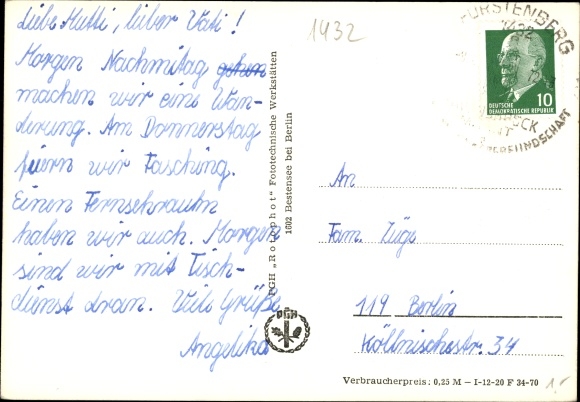 Liebe Mutti, lieber Vati!
Morgen Nachmittag gehen
machen wir eine Wan-
derung. Am Donnerstag
feiern wir Fasching.
Einen Fernsehraum
haben wir auch. Morgen
sind wir mit Tisch-
dienst dran. Viele Grüße
Angelika
1432
PGH „Rotophot“ Fototechnische Werkstätten
1602 Bestensee bei Berlin
PGH
FÜRSTENBERG
1432
DEUTSCHE
DEMOKRATISCHE REPUBLIK
10
An
Fam. Züge
119 Berlin
Köllnischestr. 34
Verbraucherpreis: 0,25 M – I-12-20 F 34-70
1.-